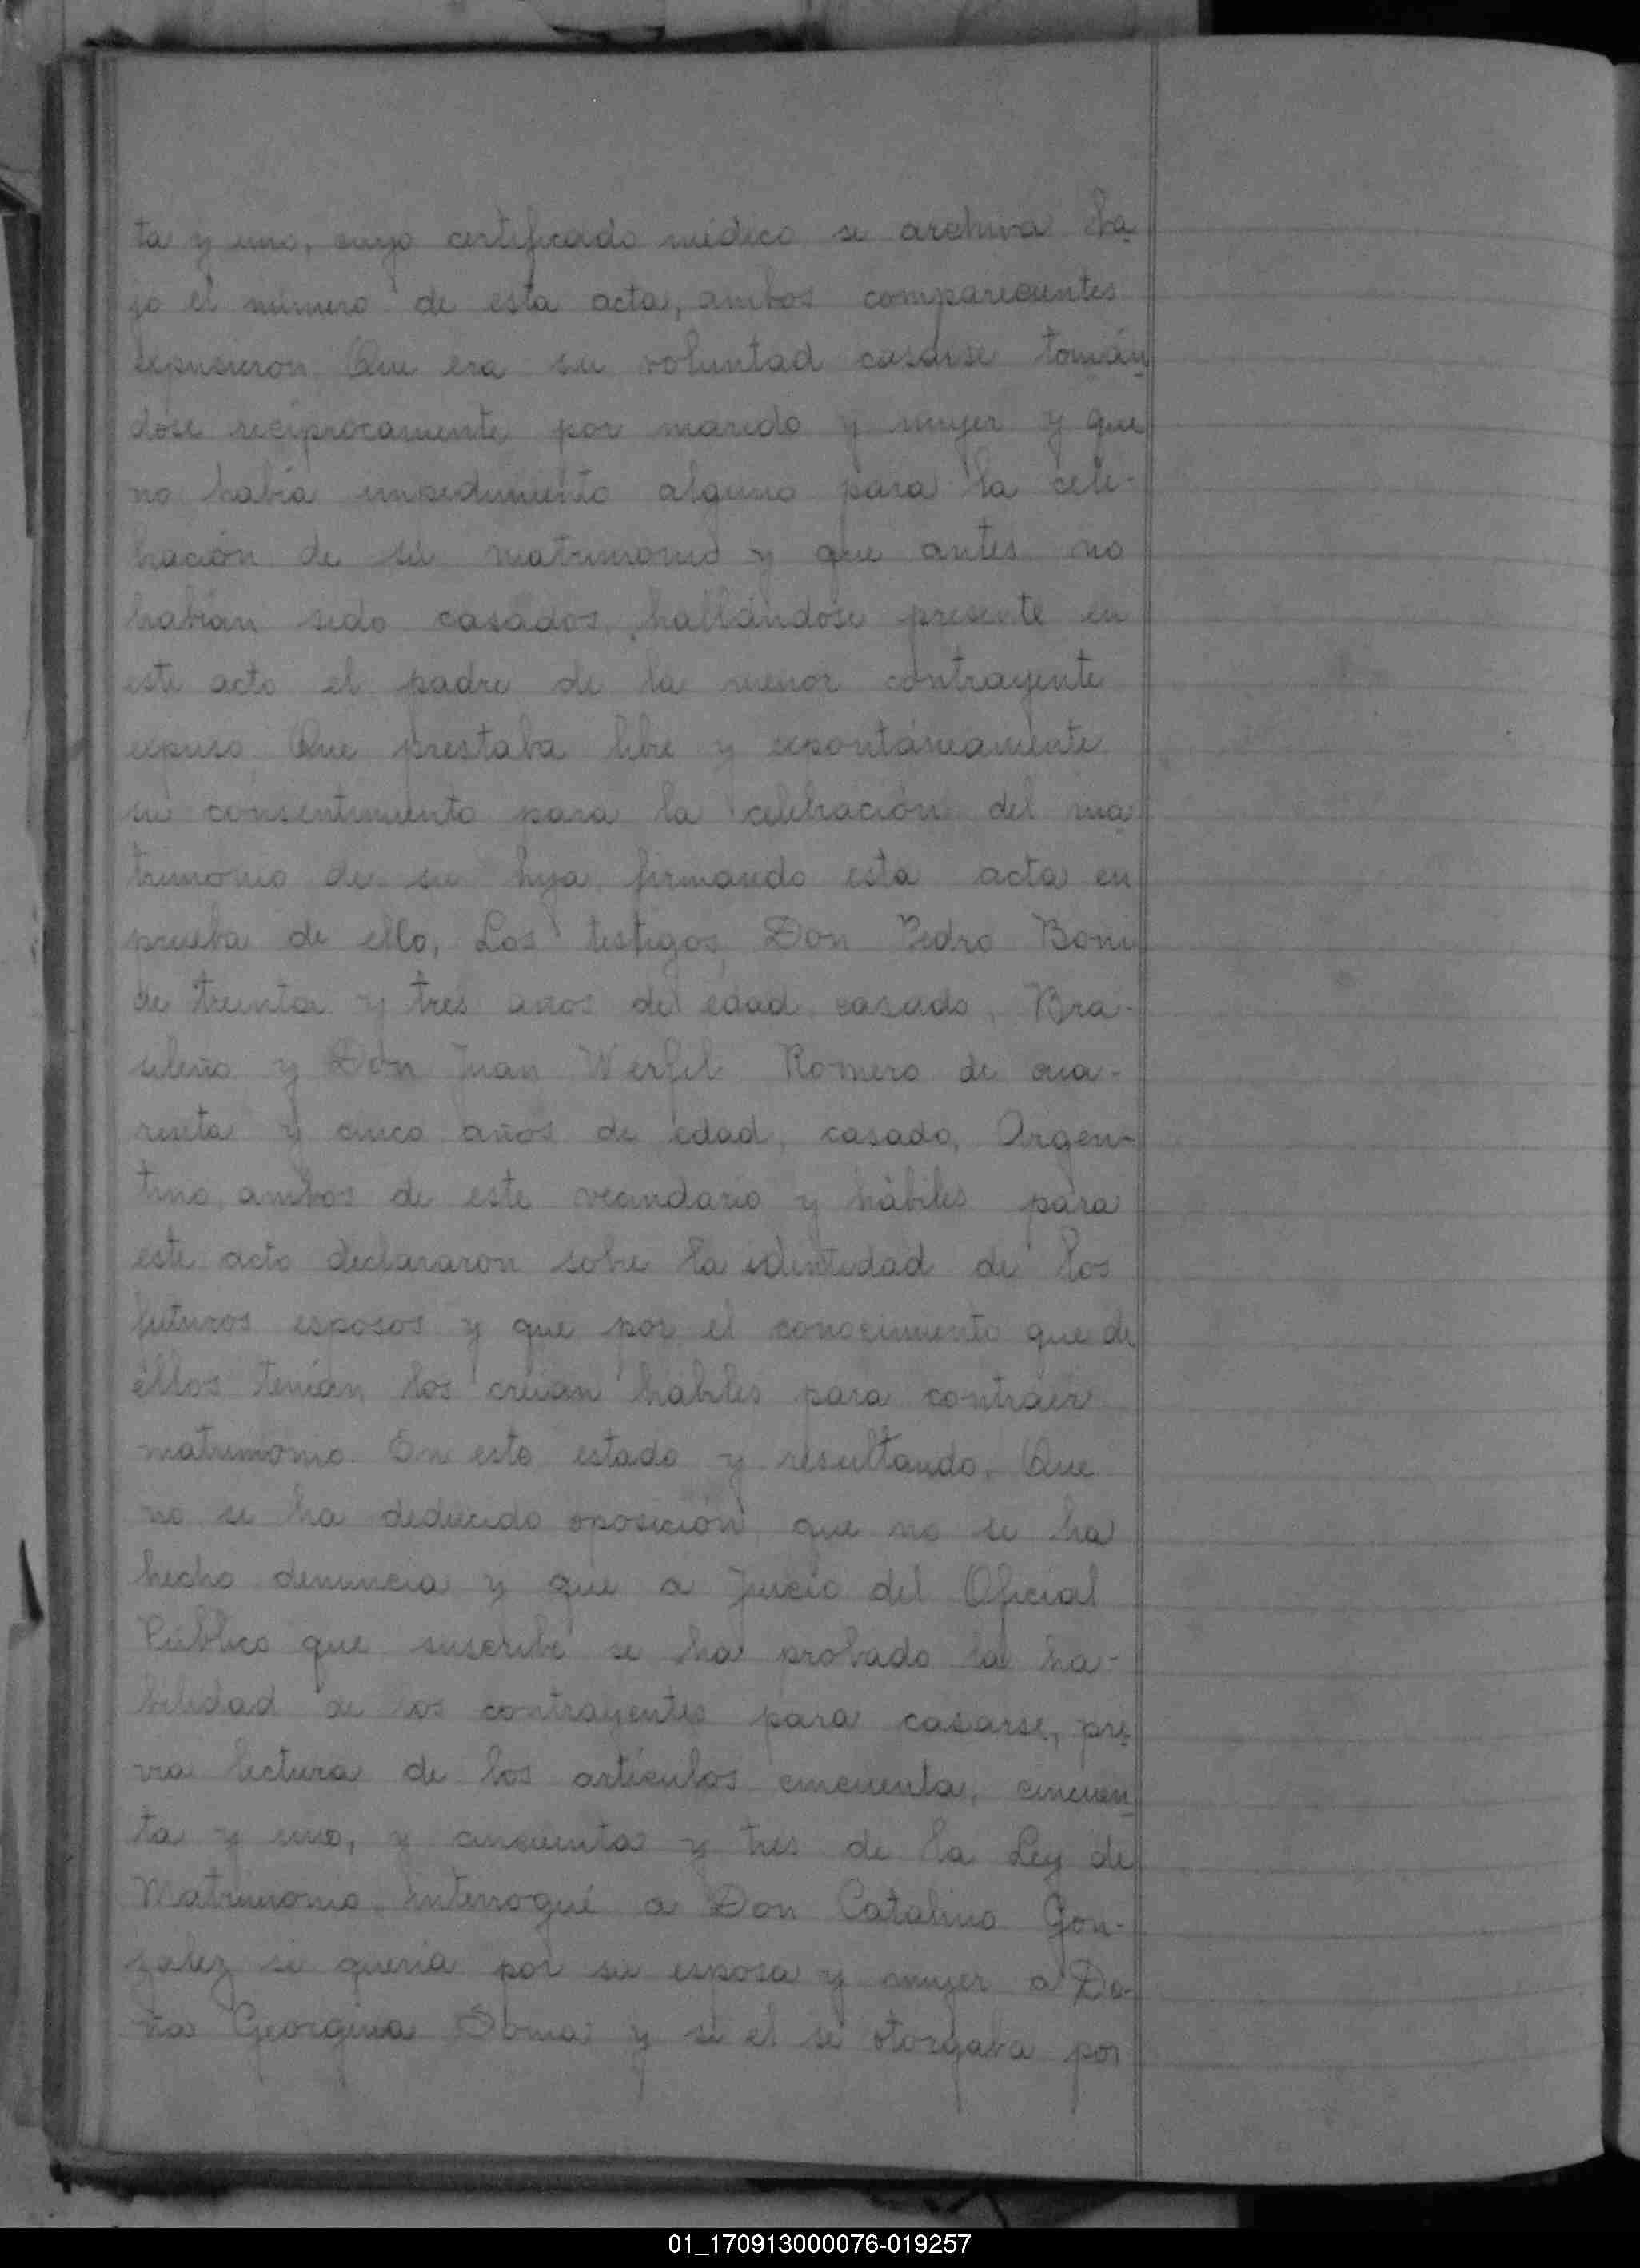 ta y uno, cuyo certificado médico se archiva ba
jo el número de esta acta, ambos comparecientes
expusieron Que era su voluntad casarse tomán
dose reciprocamente por marido y mujer y que
no había impedimento alguno para la cele-
bración de su matrimonio y que antes no
habían sido casados, hallándose presente en
este acto el padre de la menor contrayente
expuso Que prestaba libre y expontáneamente
su consentimiento para la celebración del ma
trimonio de su hija firmando esta acta en
prueba de ello, Los testigos, Don Pedro Boni
de treinta y tres años de edad, casado, Bra-
sileño y Don Juan Werfil Romero de cua-
renta y cinco años de edad, casado, Argen-
tino, ambos de este vecindario y hábiles para
este acto declararon sobre la identidad de los
futuros esposos y que por el conocimiento que de
éllos tenían, los creían habiles para contraer
matrimonio. En este estado y resultando, Que
no se ha deducido oposición, que no se ha
hecho denuncia y que a Juicio del Oficial
Público que suscribe se ha probado la ha-
bilidad de los contrayentes para casarse, pre
via lectura de los artículos cincuenta, cincuen
ta y uno, y cincuenta y tres de la Ley de
Matrimonio, interrogué a Don Catalino Gon-
zalez si quería por su esposa y mujer a Do-
ña Georgina y si el se otorgaba por
01_170913000076-019257